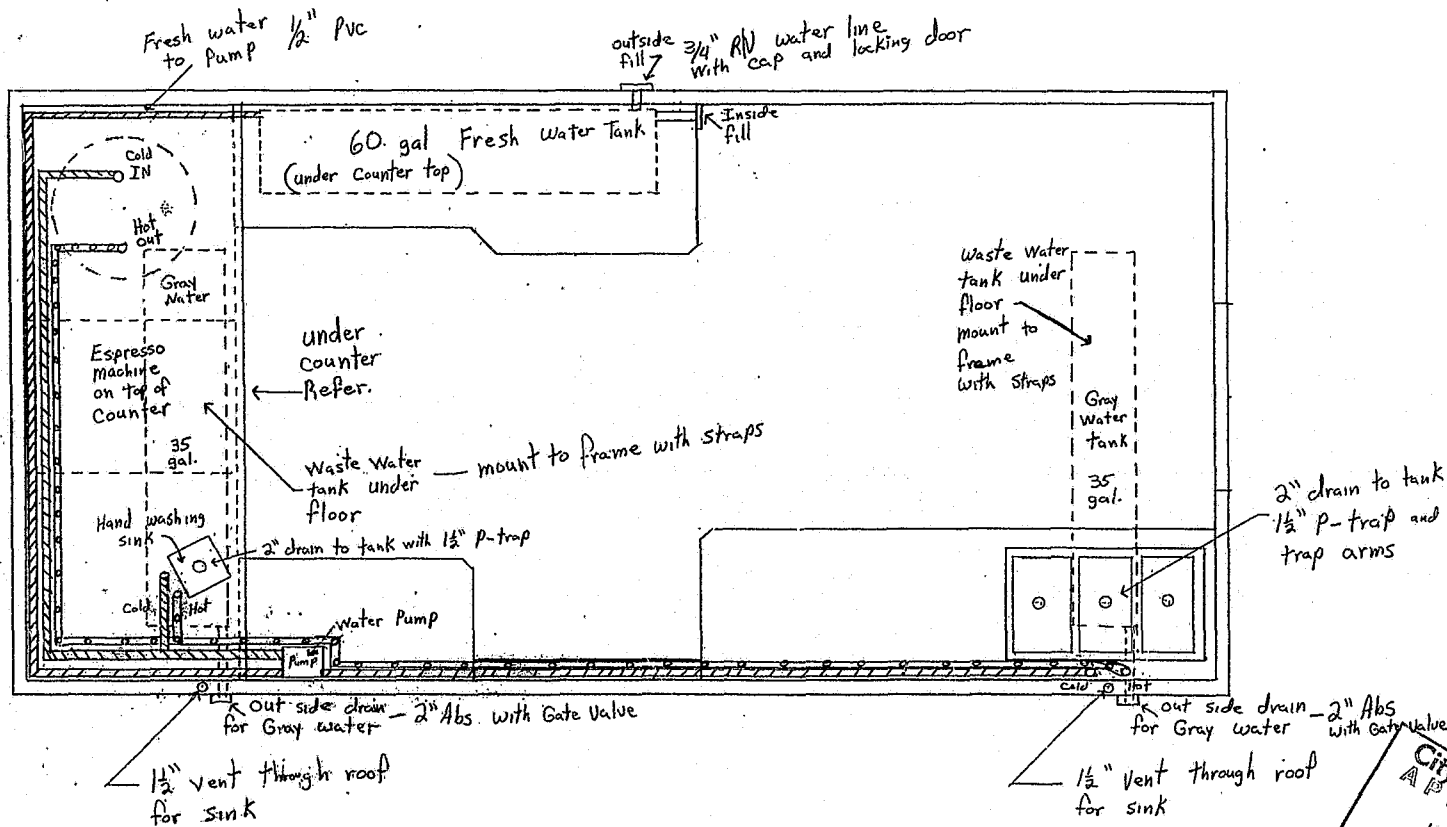 Fresh water 1/2" PVC
to Pump
outside
fill
3/4" RV water line
with cap and locking door
Inside
fill
60. gal Fresh Water Tank
(under Counter top)
Cold
IN
Hot
out
Gray
Water
Espresso
machine
on top of
Counter
35
gal.
under
counter
Refer.
Waste Water
tank under
floor
mount to frame with straps
Hand washing
sink
2" drain to tank with 1 1/2" P-trap
Cold
Hot
Water Pump
Pump
out side drain
for Gray water
2" Abs with Gate Valve
1 1/2" vent through roof
for sink
Waste Water
tank under
floor
mount to
frame
with straps
Gray
Water
tank
35
gal.
2" drain to tank
1 1/2" P-trap and
trap arms
Cold
Hot
out side drain
for Gray water
2" Abs
with Gate Valve
1 1/2" vent through roof
for sink